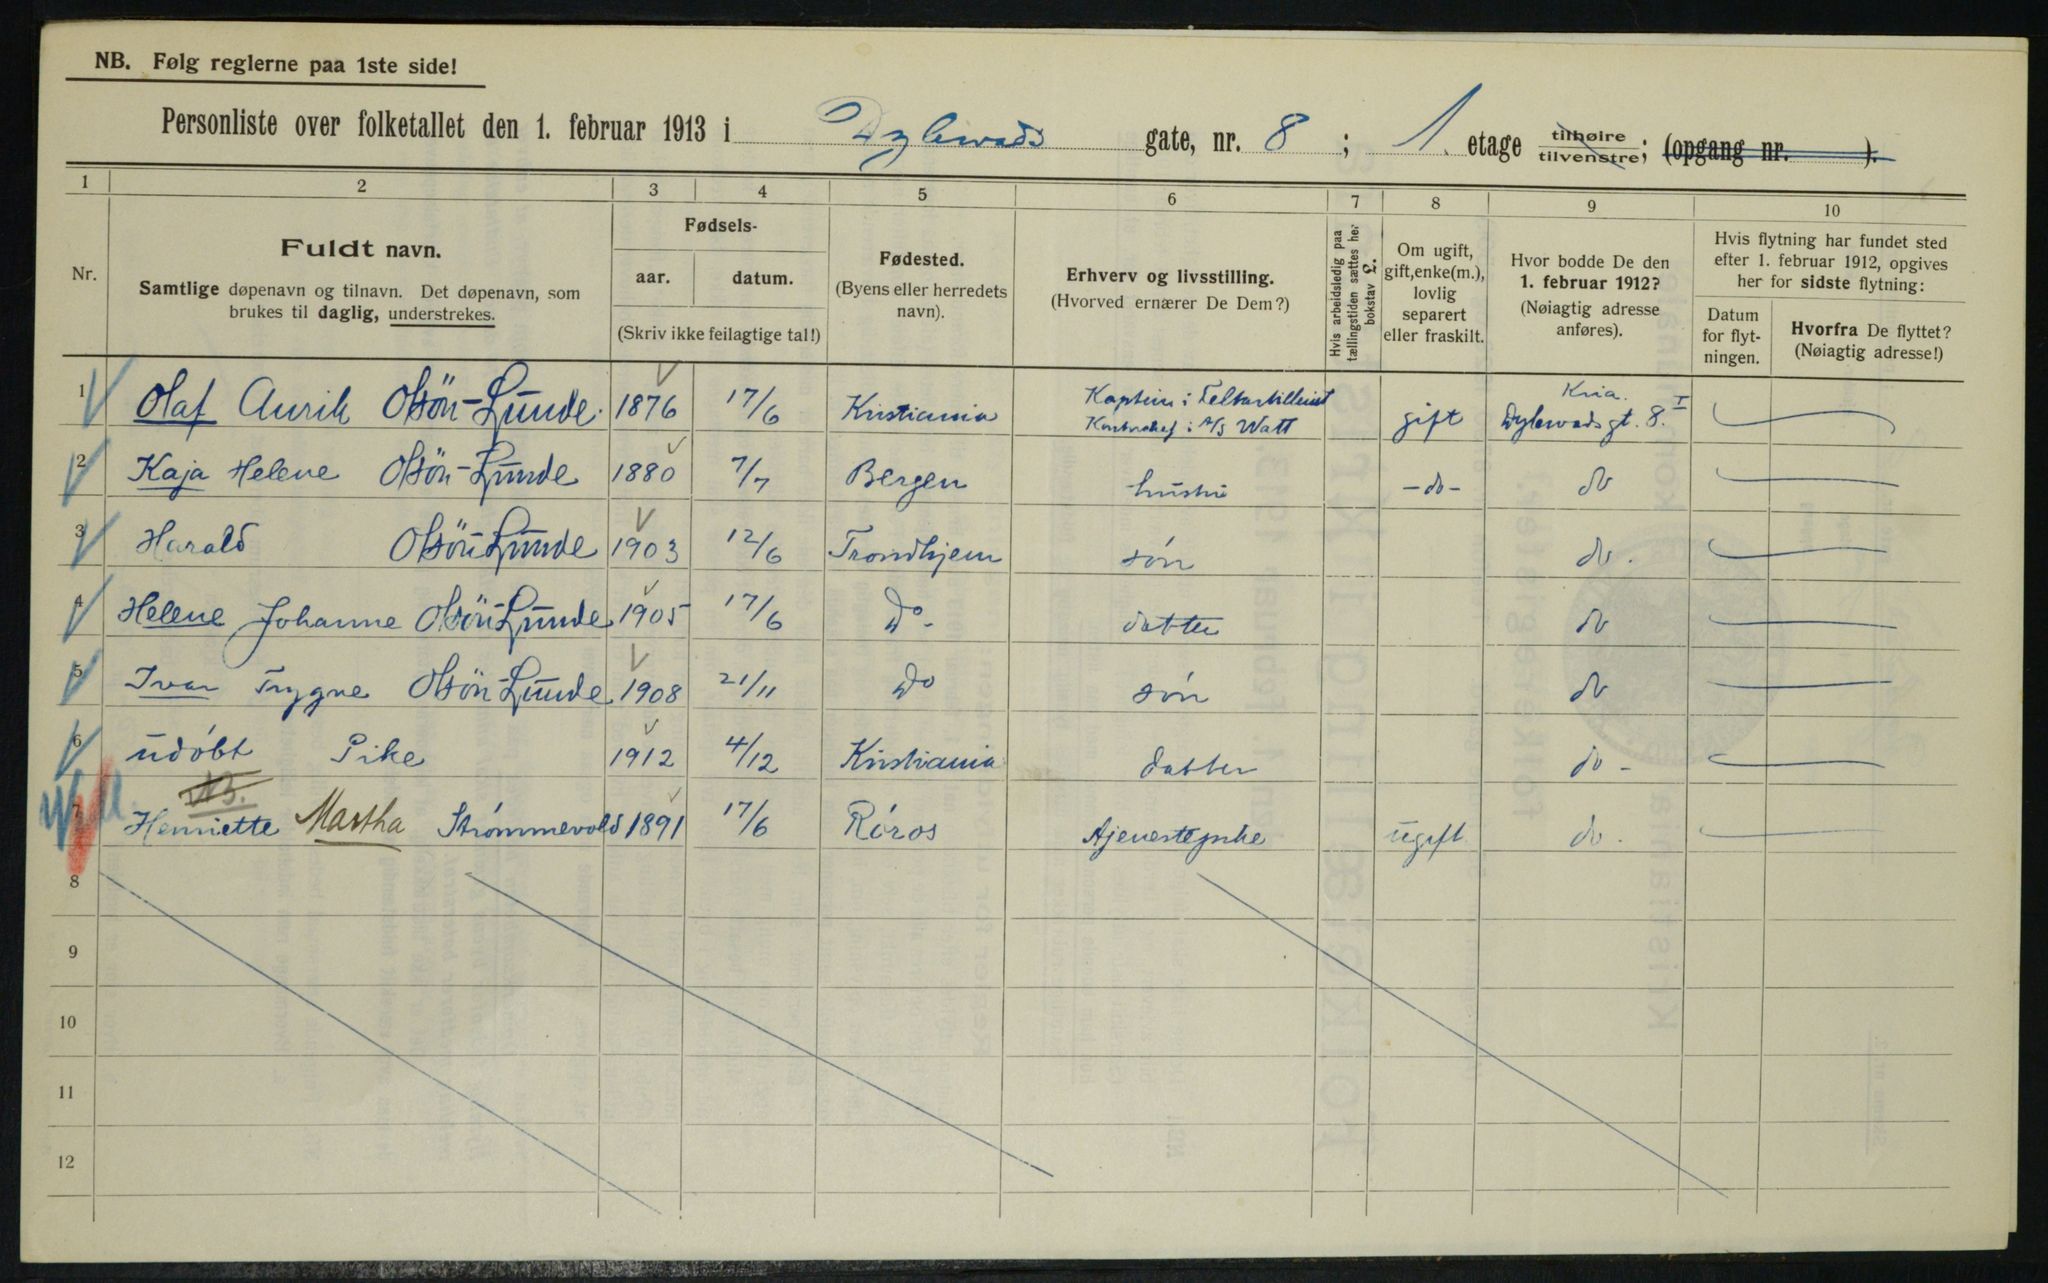 NB. Følg reglerne paa 1ste side!
Personliste over folketallet den 1. februar 1913 i Dylewads gate, nr. 8 ; 1. etage tilhøire tilvenstre; (opgang nr. ).
1 2 3 4 5 6 7 8 9 10
Nr.
Fuldt navn.
Samtlige døpenavn og tilnavn. Det døpenavn, som
brukes til daglig, understrekes.
Fødsels-
aar. datum.
(Skriv ikke feilagtige tal!)
Fødested.
(Byens eller herredets
navn).
Erhverv og livsstilling.
(Hvorved ernærer De Dem?)
Hvis arbeidsledig paa
tællingstiden sættes her
bokstav L.
Om ugift,
gift, enke(m.),
lovlig
separert
eller fraskilt.
Hvor bodde De den
1. februar 1912?
(Nøiagtig adresse
anføres).
Hvis flytning har fundet sted
efter 1. februar 1912, opgives
her for sidste flytning:
Datum
for flyt-
ningen.
Hvorfra De flyttet?
(Nøiagtig adresse!)
1 Olaf Olsön-Lunde. 1876 17/6 Kristiania Kaptein i Feltartilleriet gift Kria.
Kontorchef i A/S Watt Dylewadsgt. 8. I
2 Kaja Helene Olsön-Lunde 1880 7/7 Bergen hustru -do- do
3 Harald Olsön-Lunde 1903 12/6 Trondhjem søn do.
4 Helene Johanne Olsön-Lunde 1905 17/6 Do- datter do
5 Ivar Trygve Olsön-Lunde 1908 21/11 Do søn do
6 udøbt Pike 1912 4/12 Kristiania datter do-
NB.
7 Henriette Martha Strømmevold 1891 17/6 Røros tjenestepike ugift do.
8
9
10
11
12